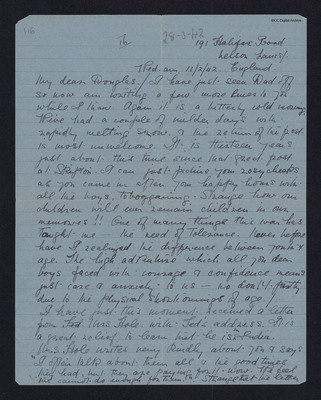 IBCC Digital Archive
28-3-42
191 Halifax Road
Nelson Lancs.
England
Wed. am 11/2/42.
My dear Douglas / I have just seen Dad off
so now am writing a few more lines to you
while I thaw. Again it is a bitterly cold morning
We've had a couple of milder days with
rapidly melting snow & the return of the frost
is most unwelcome. It is thirteen years
just about this time since that good frost
at Skipton. I can just picture your rosy cheeks
as you came in after your happy hours with
all the boys, tobogganing. Strange how our
children will ever remain children in our
memories!! One of many things this war has
taught me — the need of tolerance. Never before
have I realized the difference between youth &
age. The high adventure which all you dear
boys faced with courage & confidence means
just care & anxiety to us — no doubt partly
due to the physical shortcomings of age!
I have just this moment received a letter
from Mrs Hole with Ted's address. It is
a great relief to learn that he is in India.
Mrs Hole writes very kindly about you & says
"I often talk about them all & the good times
they had, but they are paying for it now. We feel
we cannot do enough for them". Strange that his letter